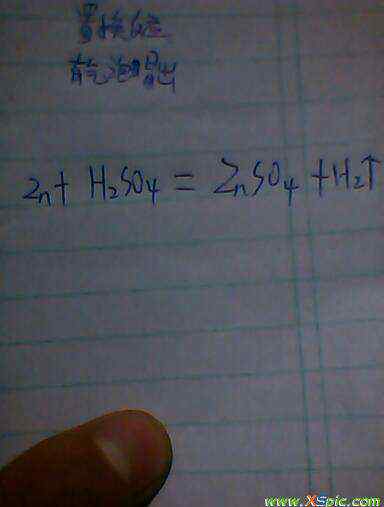 置换反应
有气泡冒出
Zn+ H₂SO₄ = ZnSO₄ +H₂↑
www.XSpic.com